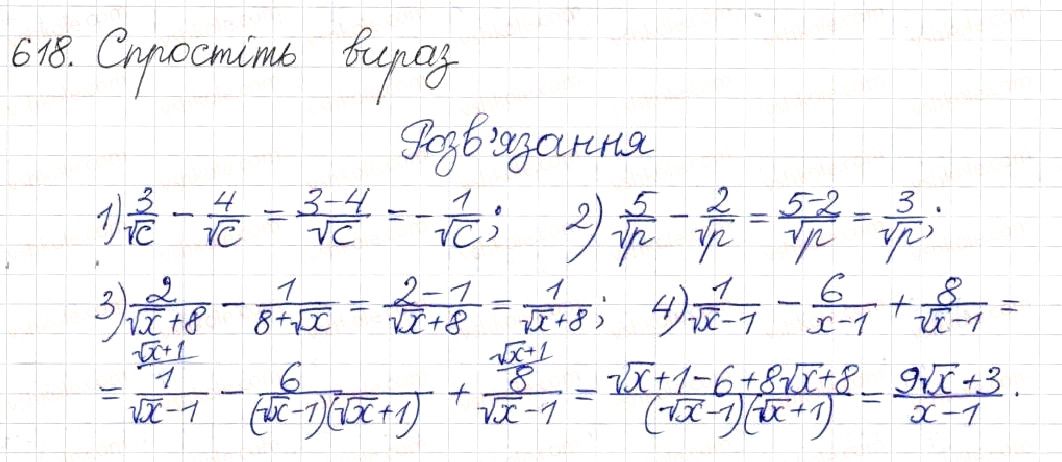 618. Спростіть вираз
Розв'язання
1) 3/√c − 4/√c = (3−4)/√c = −1/√c; 2) 5/√p − 2/√p = (5−2)/√p = 3/√p;
3) 2/(√x+8) − 1/(8+√x) = (2−1)/(√x+8) = 1/(√x+8); 4) 1/(√x−1) − 6/(x−1) + 8/(√x−1) =
√x+1 √x+1
= 1/(√x−1) − 6/((√x−1)(√x+1)) + 8/(√x−1) = (√x+1−6+8√x+8)/((√x−1)(√x+1)) = (9√x+3)/(x−1).